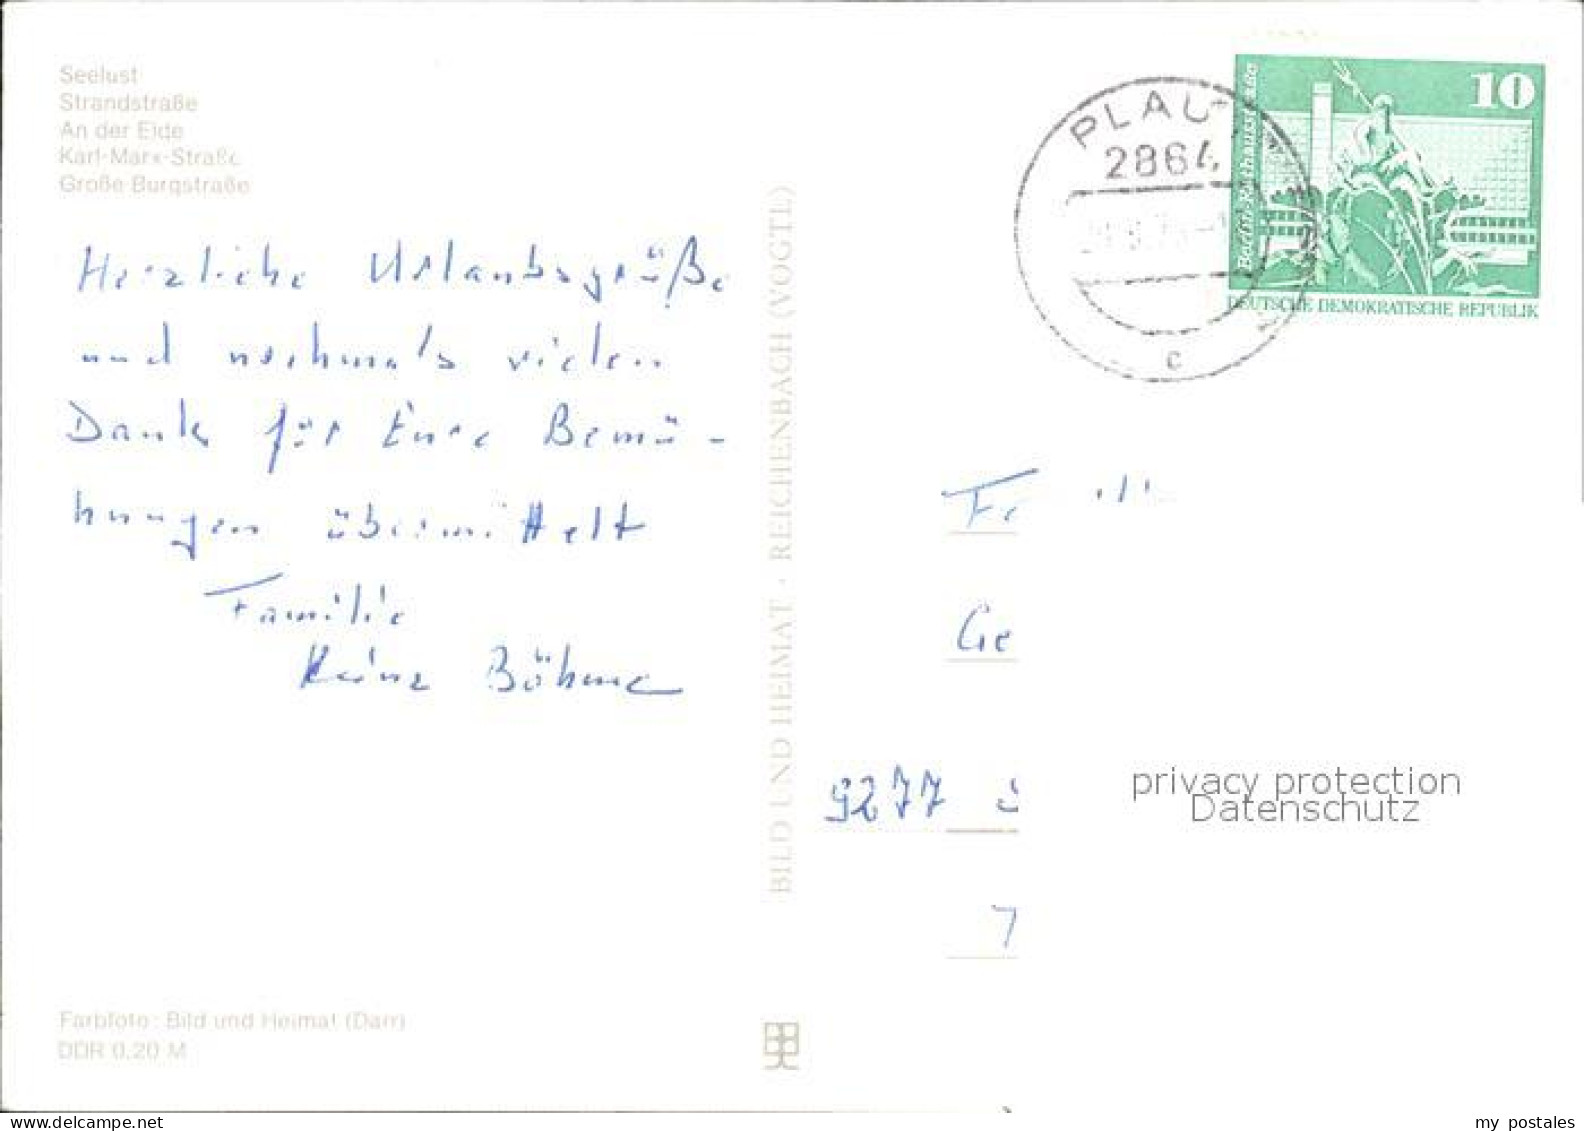 Seelust
Strandstraße
An der Elde
Karl-Marx-Straße
Große Burgstraße
Herzliche Urlaubsgrüße
und nochmals vielen
Dank für Eure Bemü-
hungen übermittelt
Familie
Heinz Böhme
BILD UND HEIMAT · REICHENBACH (VOGTL)
Farbfoto: Bild und Heimat (Darr)
DDR 0,20 M
PLAU
2864
c
10
Berlin, Rathausstraße
DEUTSCHE DEMOKRATISCHE REPUBLIK
Ge
9277
privacy protection
Datenschutz
delcampe.net
my postales